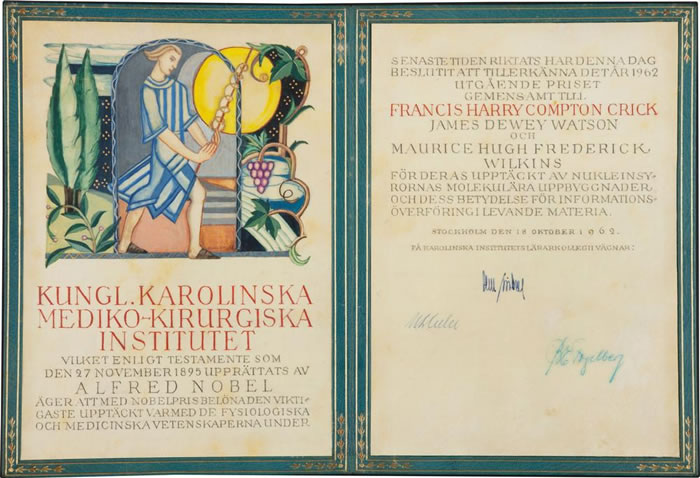 KUNGL. KAROLINSKA
MEDIKO-KIRURGISKA
INSTITUTET
VILKET ENLIGT TESTAMENTE SOM
DEN 27 NOVEMBER 1895 UPPRÄTTATS AV
ALFRED NOBEL
ÄGER ATT MED NOBELPRIS BELÖNA DEN VIKTI-
GASTE UPPTÄCKT VARMED DE FYSIOLOGISKA
OCH MEDICINSKA VETENSKAPERNA UNDER
SENASTE TIDEN RIKTATS HAR DENNA DAG
BESLUTIT ATT TILLERKÄNNA DET ÅR 1962
UTGÅENDE PRISET
GEMENSAMT TILL
FRANCIS HARRY COMPTON CRICK
JAMES DEWEY WATSON
OCH
MAURICE HUGH FREDERICK
WILKINS
FÖR DERAS UPPTÄCKT AV NUKLEINSY-
RORNAS MOLEKULÄRA UPPBYGGNAD ER
OCH DESS BETYDELSE FÖR INFORMATIONS-
ÖVERFÖRING I LEVANDE MATERIA.
STOCKHOLM DEN 18 OKTOBER 1962.
PÅ KAROLINSKA INSTITUTETS LÄRARKOLLEGII VÄGNAR: